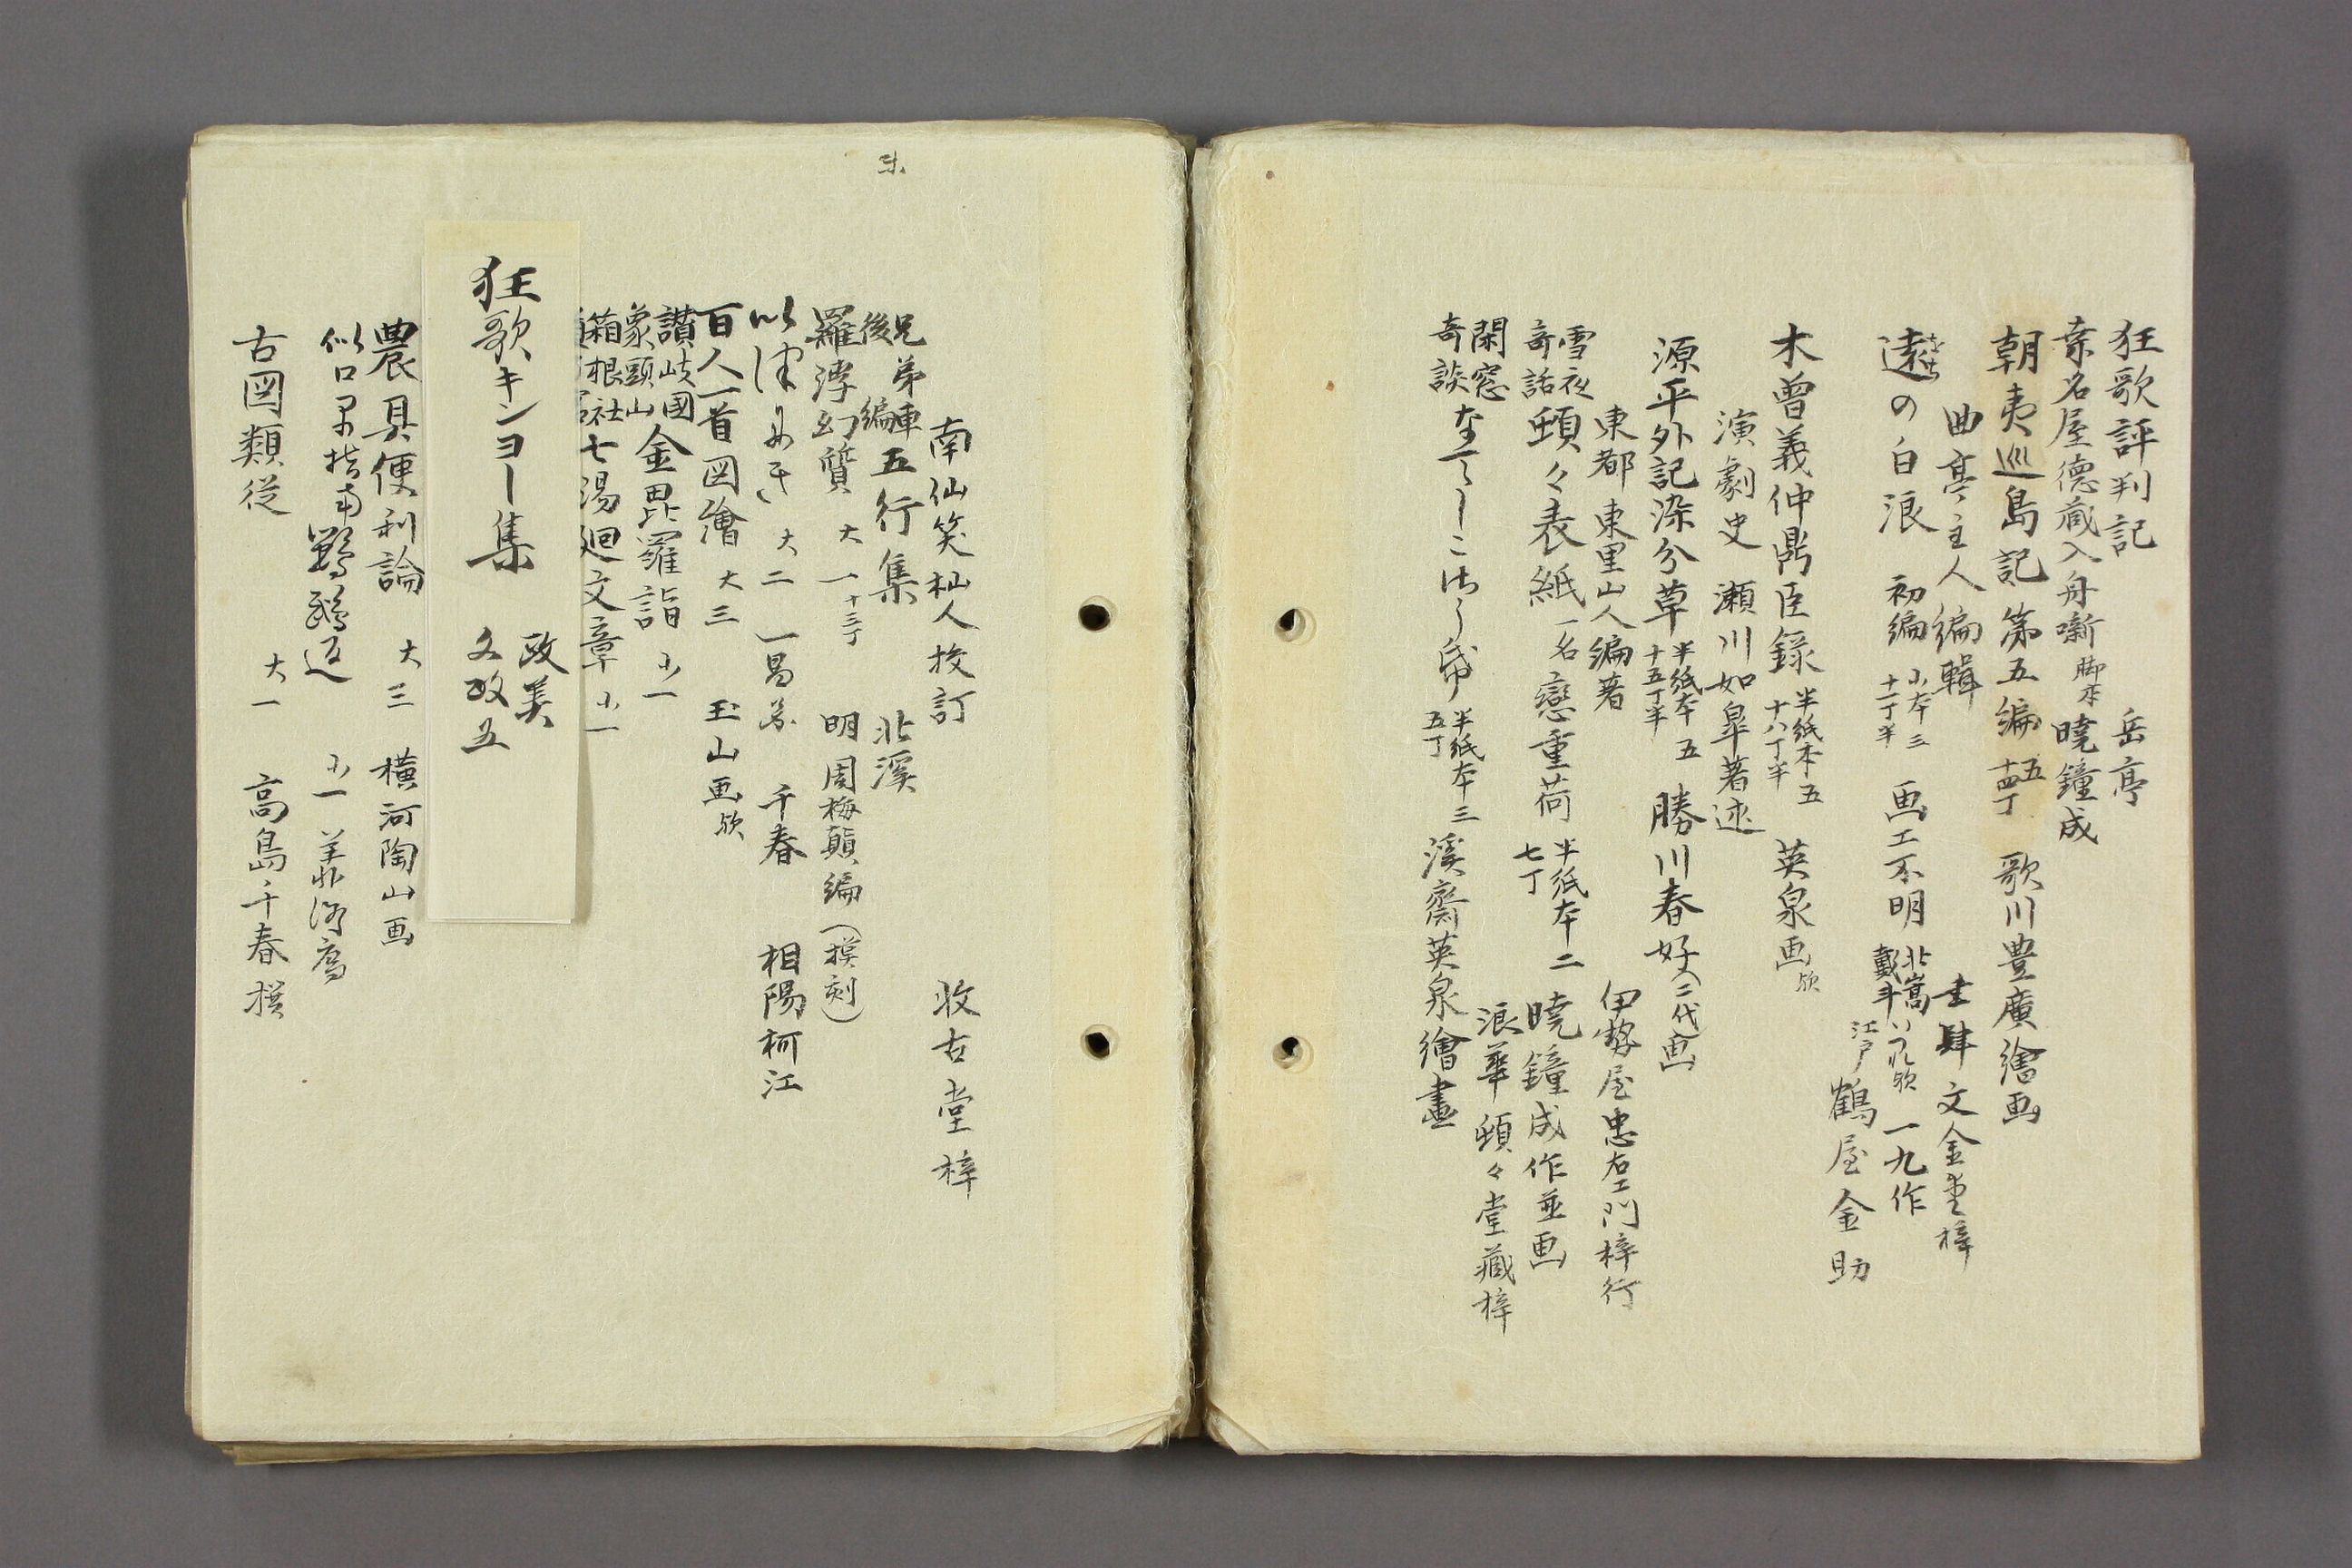 狂歌評判記 岳亭
桑名屋徳蔵入舟噺 脚本 暁鐘成
朝夷巡島記 第五編 五 十四丁 歌川豊廣繪画
曲亭主人編輯 書肆 文金堂梓
遠の白浪 初編 小本三 十一丁半 画工不明 北嵩 戴斗 いつれ歟 一九作
江戸 鶴屋金助
木曽義仲鼎臣録 半紙本五 十八丁半 英泉画歟
演劇史 瀬川如皐著述
源平外記染分草 半紙本五 十五丁半 勝川春好(二代画)
東都 東里山人編著 伊勢屋忠右エ門梓行
雪夜奇話 頓々表紙 一名 戀重荷 半紙本二 七丁 暁鐘成作並画
浪華 頓々堂藏梓
閑窓奇談 半紙本三 五丁 溪齋英泉繪畫
南仙笑杣人挍訂 收古堂梓
兄弟車 後編 五行集 北溪
羅浮幻質 大一 十三丁 明周梅顛編(摸刻)
大二 一冊 千春 相陽柯江
百人一首図繪 大三 玉山画歟
讃岐國 象頭山 金毘羅詣 小一
箱根社 七湯廻文章 小一
狂歌キンヨー集 政美 文政五
農具便利論 大三 横河陶山画
似口早指南 鸚鵡返 小一
古図類従 大一 高島千春撰